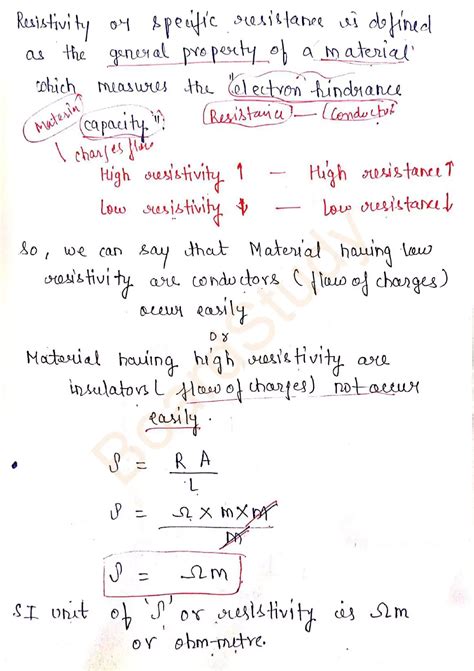 Resistivity or specific resistance is defined
as the general property of a material
which measures the "electron hindrance
Material
capacity".
(Resistance) — (Conductor
charges flow
High resistivity ↑ — High resistance ↑
Low resistivity ↓ — Low resistance ↓
So, we can say that Material having low
resistivity are conductors (flow of charges)
occur easily
or
Material having high resistivity are
insulators (flow of charges) not occur
easily.
ρ = R A
L
ρ = Ω × m × m
m
ρ = Ωm
SI unit of 'ρ' or resistivity is Ωm
or ohm-metre.
BoardStudy